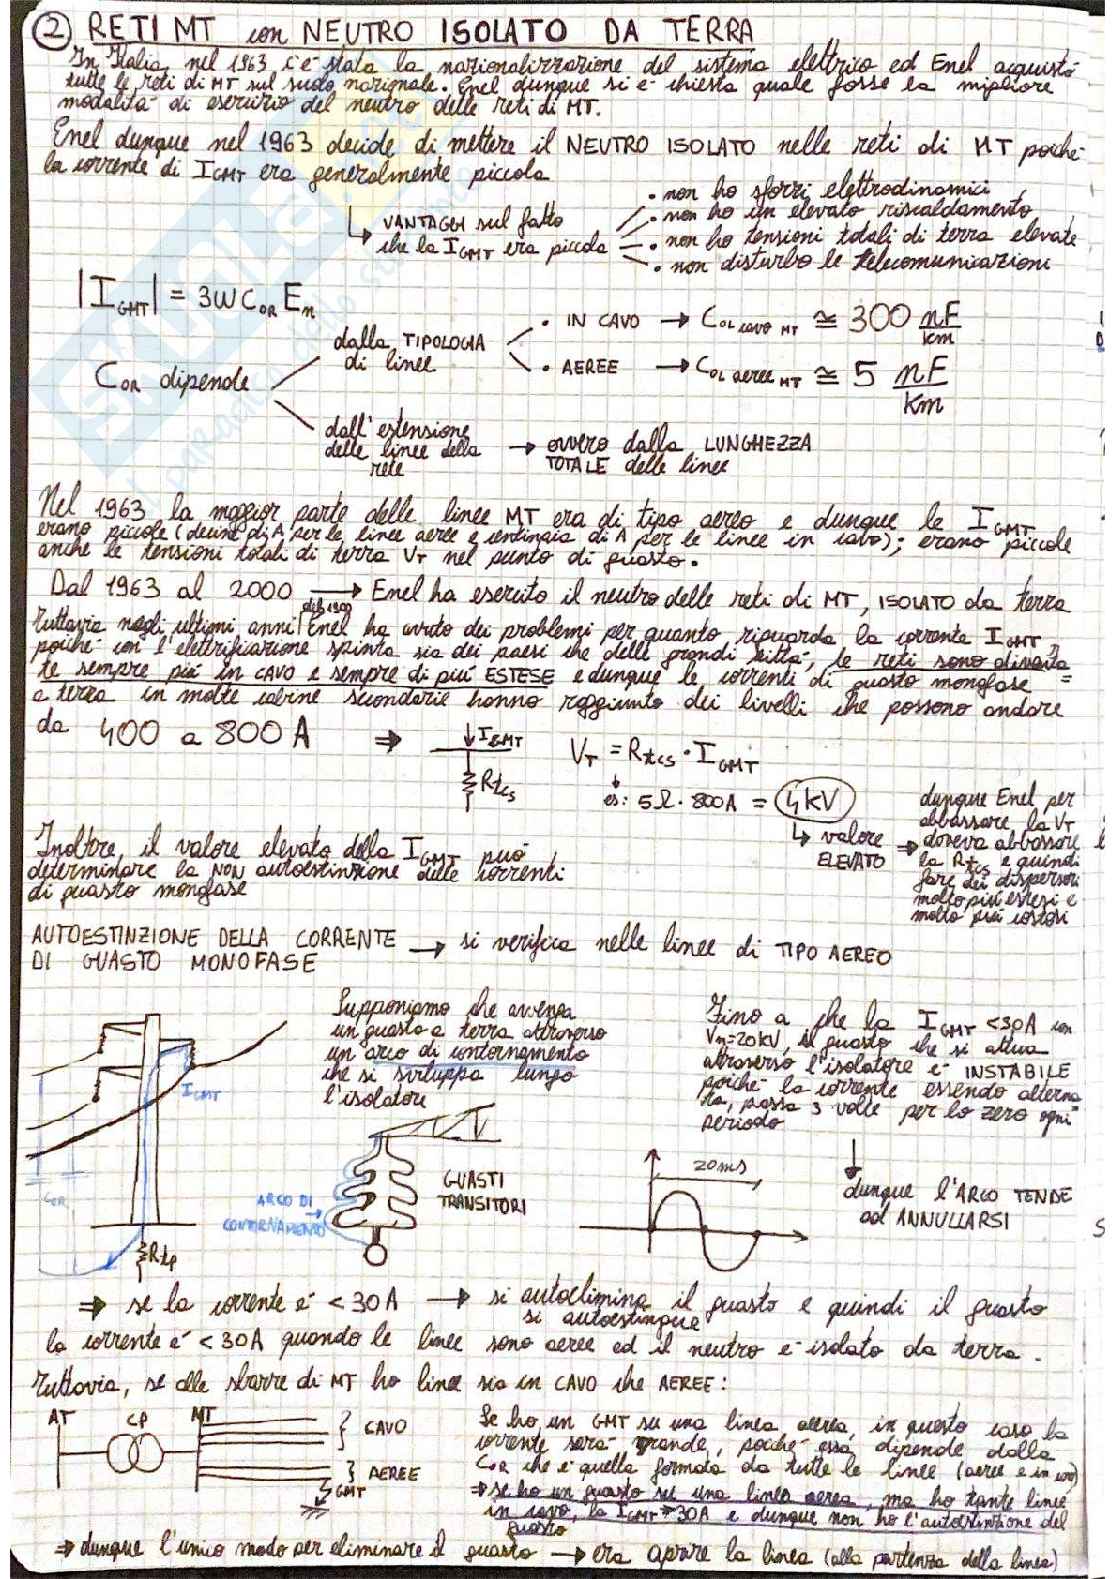 ② RETI MT con NEUTRO ISOLATO DA TERRA
In Italia, nel 1963 c'è stata la nazionalizzazione del sistema elettrico ed Enel acquistò
tutte le reti di MT sul suolo nazionale. Enel dunque si è chiesta quale fosse la migliore
modalità di esercizio del neutro delle reti di MT.
Enel dunque nel 1963 decide di mettere il NEUTRO ISOLATO nelle reti di MT poichè
la corrente di IGMT era generalmente piccola
VANTAGGI sul fatto
che la IGMT era piccola
• non ho sforzi elettrodinamici
• non ho un elevato riscaldamento
• non ho tensioni totali di terra elevate
• non disturbo le telecomunicazioni
|IGMT| = 3WCOR En
COR dipende
dalla TIPOLOGIA
di linee
• IN CAVO → COL cavo MT ≅ 300 nF/km
• AEREE → COL aeree MT ≅ 5 nF/Km
dall'estensione
delle linee della
rete
→ ovvero dalla LUNGHEZZA
TOTALE delle linee
Nel 1963 la maggior parte delle linee MT era di tipo aereo e dunque le IGMT
erano piccole (decine di A per le linee aeree e centinaia di A per le linee in cavo); erano piccole
anche le tensioni totali di terra VT nel punto di guasto.
Dal 1963 al 2000 → Enel ha esercito il neutro delle reti di MT, ISOLATO da terra
Tuttavia negli ultimi anni Enel ha avuto dei problemi per quanto riguarda la corrente IGMT
poichè con l'elettrificazione spinta sia dei paesi che delle grandi città, le reti sono diventa
te sempre più in CAVO e sempre di più ESTESE e dunque le correnti di guasto monofase =
a terra in molte cabine secondarie hanno raggiunto dei livelli che possono andare
da 400 a 800 A ⇒
IGMT
Rtcs
VT = Rtcs · IGMT
es: 5Ω · 800A = 4kV
↳ valore
ELEVATO
dunque Enel per
abbassare la VT
→ doveva abbassare
la Rtcs e quindi
fare dei dispersori
molto più estesi e
molto più costosi
Inoltre, il valore elevato della IGMT può
determinare la NON autoestinzione delle correnti
di guasto monofase
AUTOESTINZIONE DELLA CORRENTE
DI GUASTO MONOFASE
→ si verifica nelle linee di TIPO AEREO
IGMT
COR
Rtp
Supponiamo che avvenga
un guasto a terra attraverso
un arco di contornamento
che si sviluppa lungo
l'isolatore
ARCO DI
CONTORNAMENTO
GUASTI
TRANSITORI
Fino a che la IGMT <30A con
Vn=20kV, il guasto che si attua
attraverso l'isolatore è INSTABILE
poichè la corrente essendo alterna
ta, passa 3 volte per lo zero ogni
periodo
20ms
↓
dunque l'ARCO TENDE
ad ANNULLARSI
⇒ se la corrente è <30A → si autoelimina il guasto e quindi il guasto
si autoestingue
la corrente è <30A quando le linee sono aeree ed il neutro è isolato da terra.
Tuttavia, se alle sbarre di MT ho linee sia in CAVO che AEREE:
AT CP MT
CAVO
AEREE
GMT
Se ho un GMT su una linea aerea, in questo caso la
corrente sarà grande, poichè essa dipende dalla
COR che è quella formata da tutte le linee (aeree e in cavo)
⇒ se ho un guasto su una linea aerea, ma ho tante linee
in cavo, la IGMT >30A e dunque non ho l'autoestinzione del
guasto
⇒ dunque l'unico modo per eliminare il guasto → era aprire la linea (alla partenza della linea)